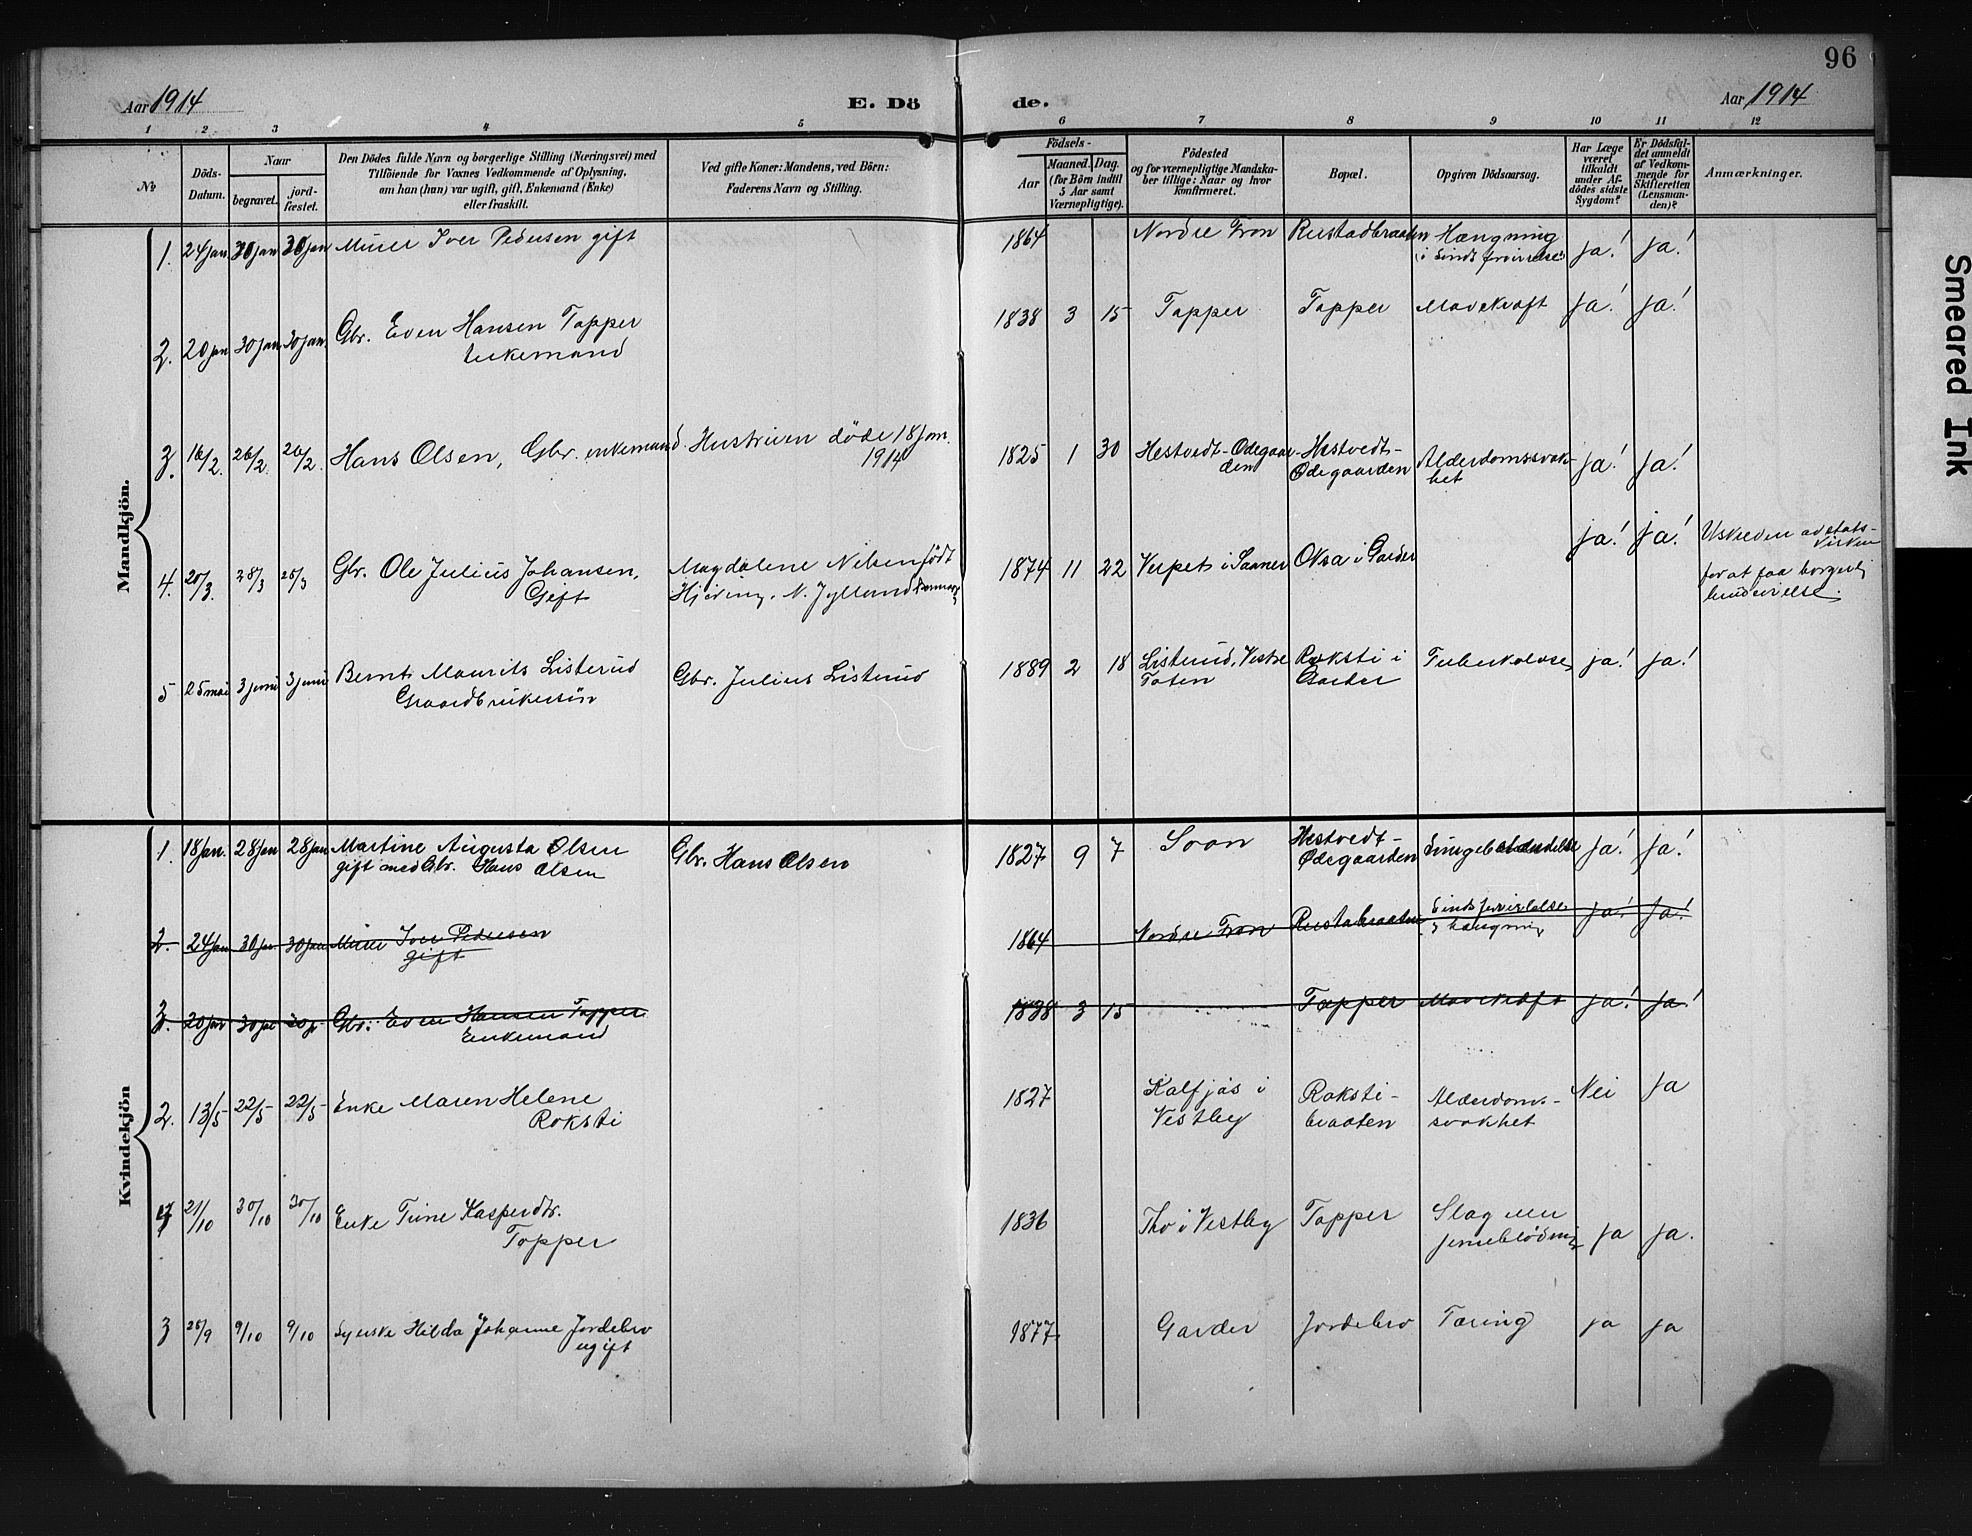 96
Aar 1914
E. Dö de.
Aar 1914
1 2 3 4 5 6 7 8 9 10 11 12
No
Döds-
Datum.
Naar
begravet.
jord-
fæstet.
Den Dödes fulde Navn og borgerlige Stilling (Næringsvei) med
Tilföiende for Voxnes Vedkommende af Oplysning,
om han (hun) var ugift, gift, Enkemand (Enke)
eller fraskilt.
Ved gifte Koner: Mandens, ved Börn:
Faderens Navn og Stilling.
Födsels-
Aar
Maaned. Dag.
(for Börn indtil
5 Aar samt
Værnepligtige).
Födested
og for værnepligtige Mandska-
ber tillige: Naar og hvor
konfirmeret.
Bopæl.
Opgiven Dödsaarsag.
Har Læge
været
tilkaldt
under Af-
dödes sidste
Sygdom?
Er Dödsfal-
det anmeldt
af Vedkom-
mende for
Skifteretten
(Lensman-
den)?
Anmærkninger.
Mandkjön.
1. 24 jan 30 jan 30 jan Murer Iver Pedersen gift 1864 Nordre Fron Rustadbraaten Hængning ja! ja!
2. 20 jan 30 jan 30 jan. Gbr. Even Hansen Topper 1838 3 15 Topper Topper Mavekræft ja! ja!
Enkemand
3. 16/2. 26/2. 26/2. Hans Olsen, Gbr. enkemand. Hustruen døde 18 jan. 1825 1 30 Hestvedt-Ødegaar- Hestvedt- Alderdomssvak- ja! ja!
1914 den Ødegaarden het
4. 20/3. 28/3 28/3 Gbr. Ole Julius Johansen, Magdalene Nilsen født 1874 11 22 Verpet i Saaner Oksa i Garder ja! ja! Utskreden av stats-
Gift Hjøring, N. Jylland Danmark kirken
for at faa borgerlig
5 25 mai 3 juni 3 juni Bernt Maurits Listerud Gbr. Julius Listerud 1889 2 18 Listerud, Vestre Roksti i Tuberkolose ja! ja!
Gaardbrukersøn Toten Garder
Kvindekjön
1. 18 jan. 28 jan 28 jan Martine Augusta Olsen Gbr. Hans Olsen 1827 9 7 Soon Hestvedt- Lungebetændelse ja! ja!
gift med Gbr. Hans Olsen Ødegaarden
2. 24 jan 30 jan 30 jan Murer Iver Pedersen 1864 Nordre Fron Rustabraaten Sindsforvirelse ja! ja!
gift hængning
3. 20 jan 30 jan 30 j. Gbr. Even Hansen Topper 1838 3 15 Topper Mavekræft ja! ja!
Enkemand
2. 13/5 22/5 22/5 Enke Maren Helene 1827 Kalfjøs i Roksti- Alderdoms- Nei ja
Roksti Vestby braaten svakhet
4 21/10 30/10 30/10 Enke Trine Kasperdtr. 1836 Tho i Vestby Topper Slag ja ja.
Topper
3 28/9 9/10 9/10 Syerske Hilda Johanne Jordebro 1877 Garder Jordebro Tæring ja ja
ugift
Smeared Ink